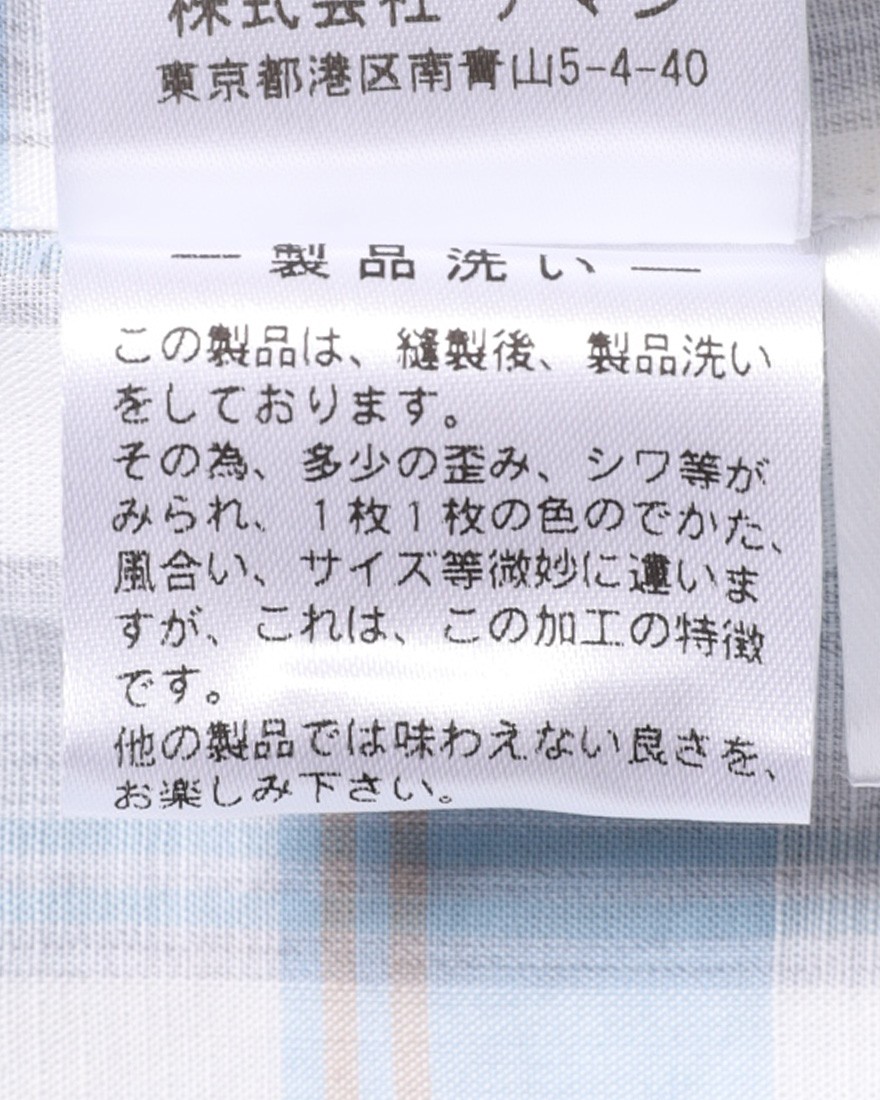 株式会社
東京都港区南青山5-4-40
― 製品洗い ―
この製品は、縫製後、製品洗い
をしております。
その為、多少の歪み、シワ等が
みられ、1枚1枚の色のでかた、
風合い、サイズ等微妙に違いま
すが、これは、この加工の特徴
です。
他の製品では味わえない良さを、
お楽しみ下さい。